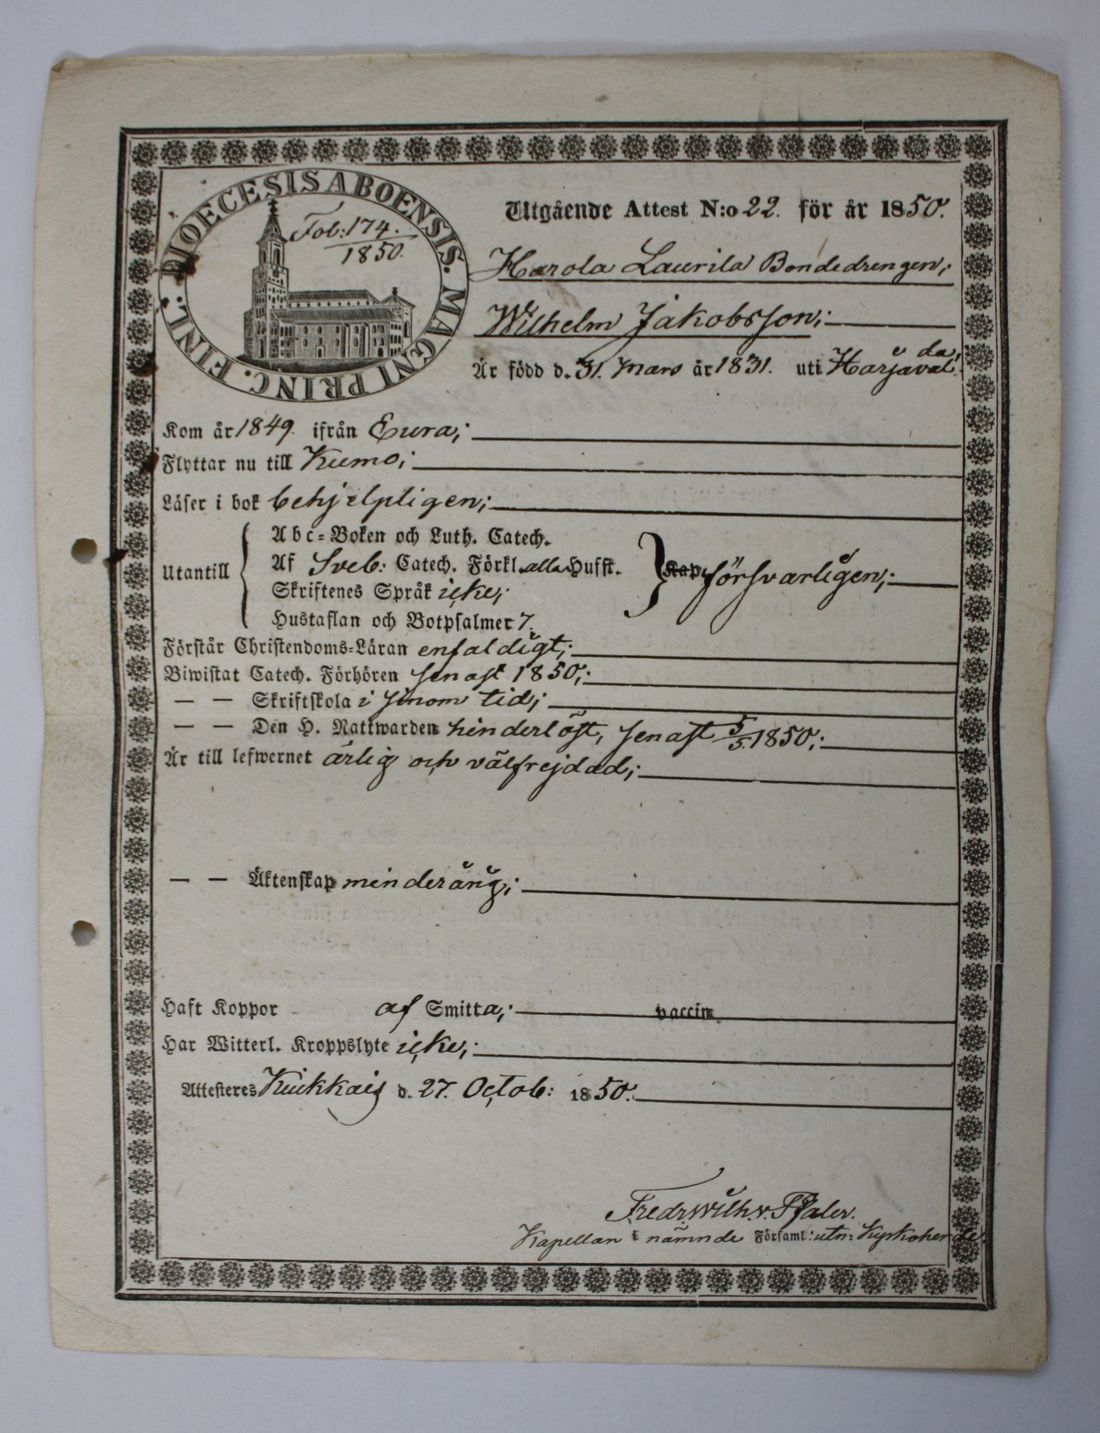 DIOECESIS ABOENSIS. MAGNI PRINC. FINL.
Fol: 174.
1850.
Utgående Attest N:o 22. för år 1850.
Harola Laurila Bondedrengen,
Wilhelm Jakobsson;
Är född d. 31. Mars år 1831. uti Harjavalda;
Kom år 1849. ifrån Eura;
Flyttar nu till Kumo;
Läser i bok behjelpligen;
Utantill
Abc-Boken och Luth. Catech.
Af Sveb: Catech. Förkl. alla Hufst.
Skriftenes Språk icke;
Hustaflan och Botpsalmer 7.
Kap. försvarligen;
Förstår Christendoms-Läran enfaldigt;
Biwistat Catech. Förhören senast 1850;
— — Skriftskola i sinom tid;
— — Den H. Nattwarden hinderlöst, senast 5/5 1850;
Är till lefwernet ärlig och välfrejdad;
— — Äktenskap minderårig;
Haft Koppor af Smitta; vaccin
Har Witterl. Kroppslyte icke;
Attesteres Kiukkais d. 27. Octob: 1850.
Fredr. Wilh. v. Pfaler.
Kapellan i nämnde Församl: utn: Kyrkoherde